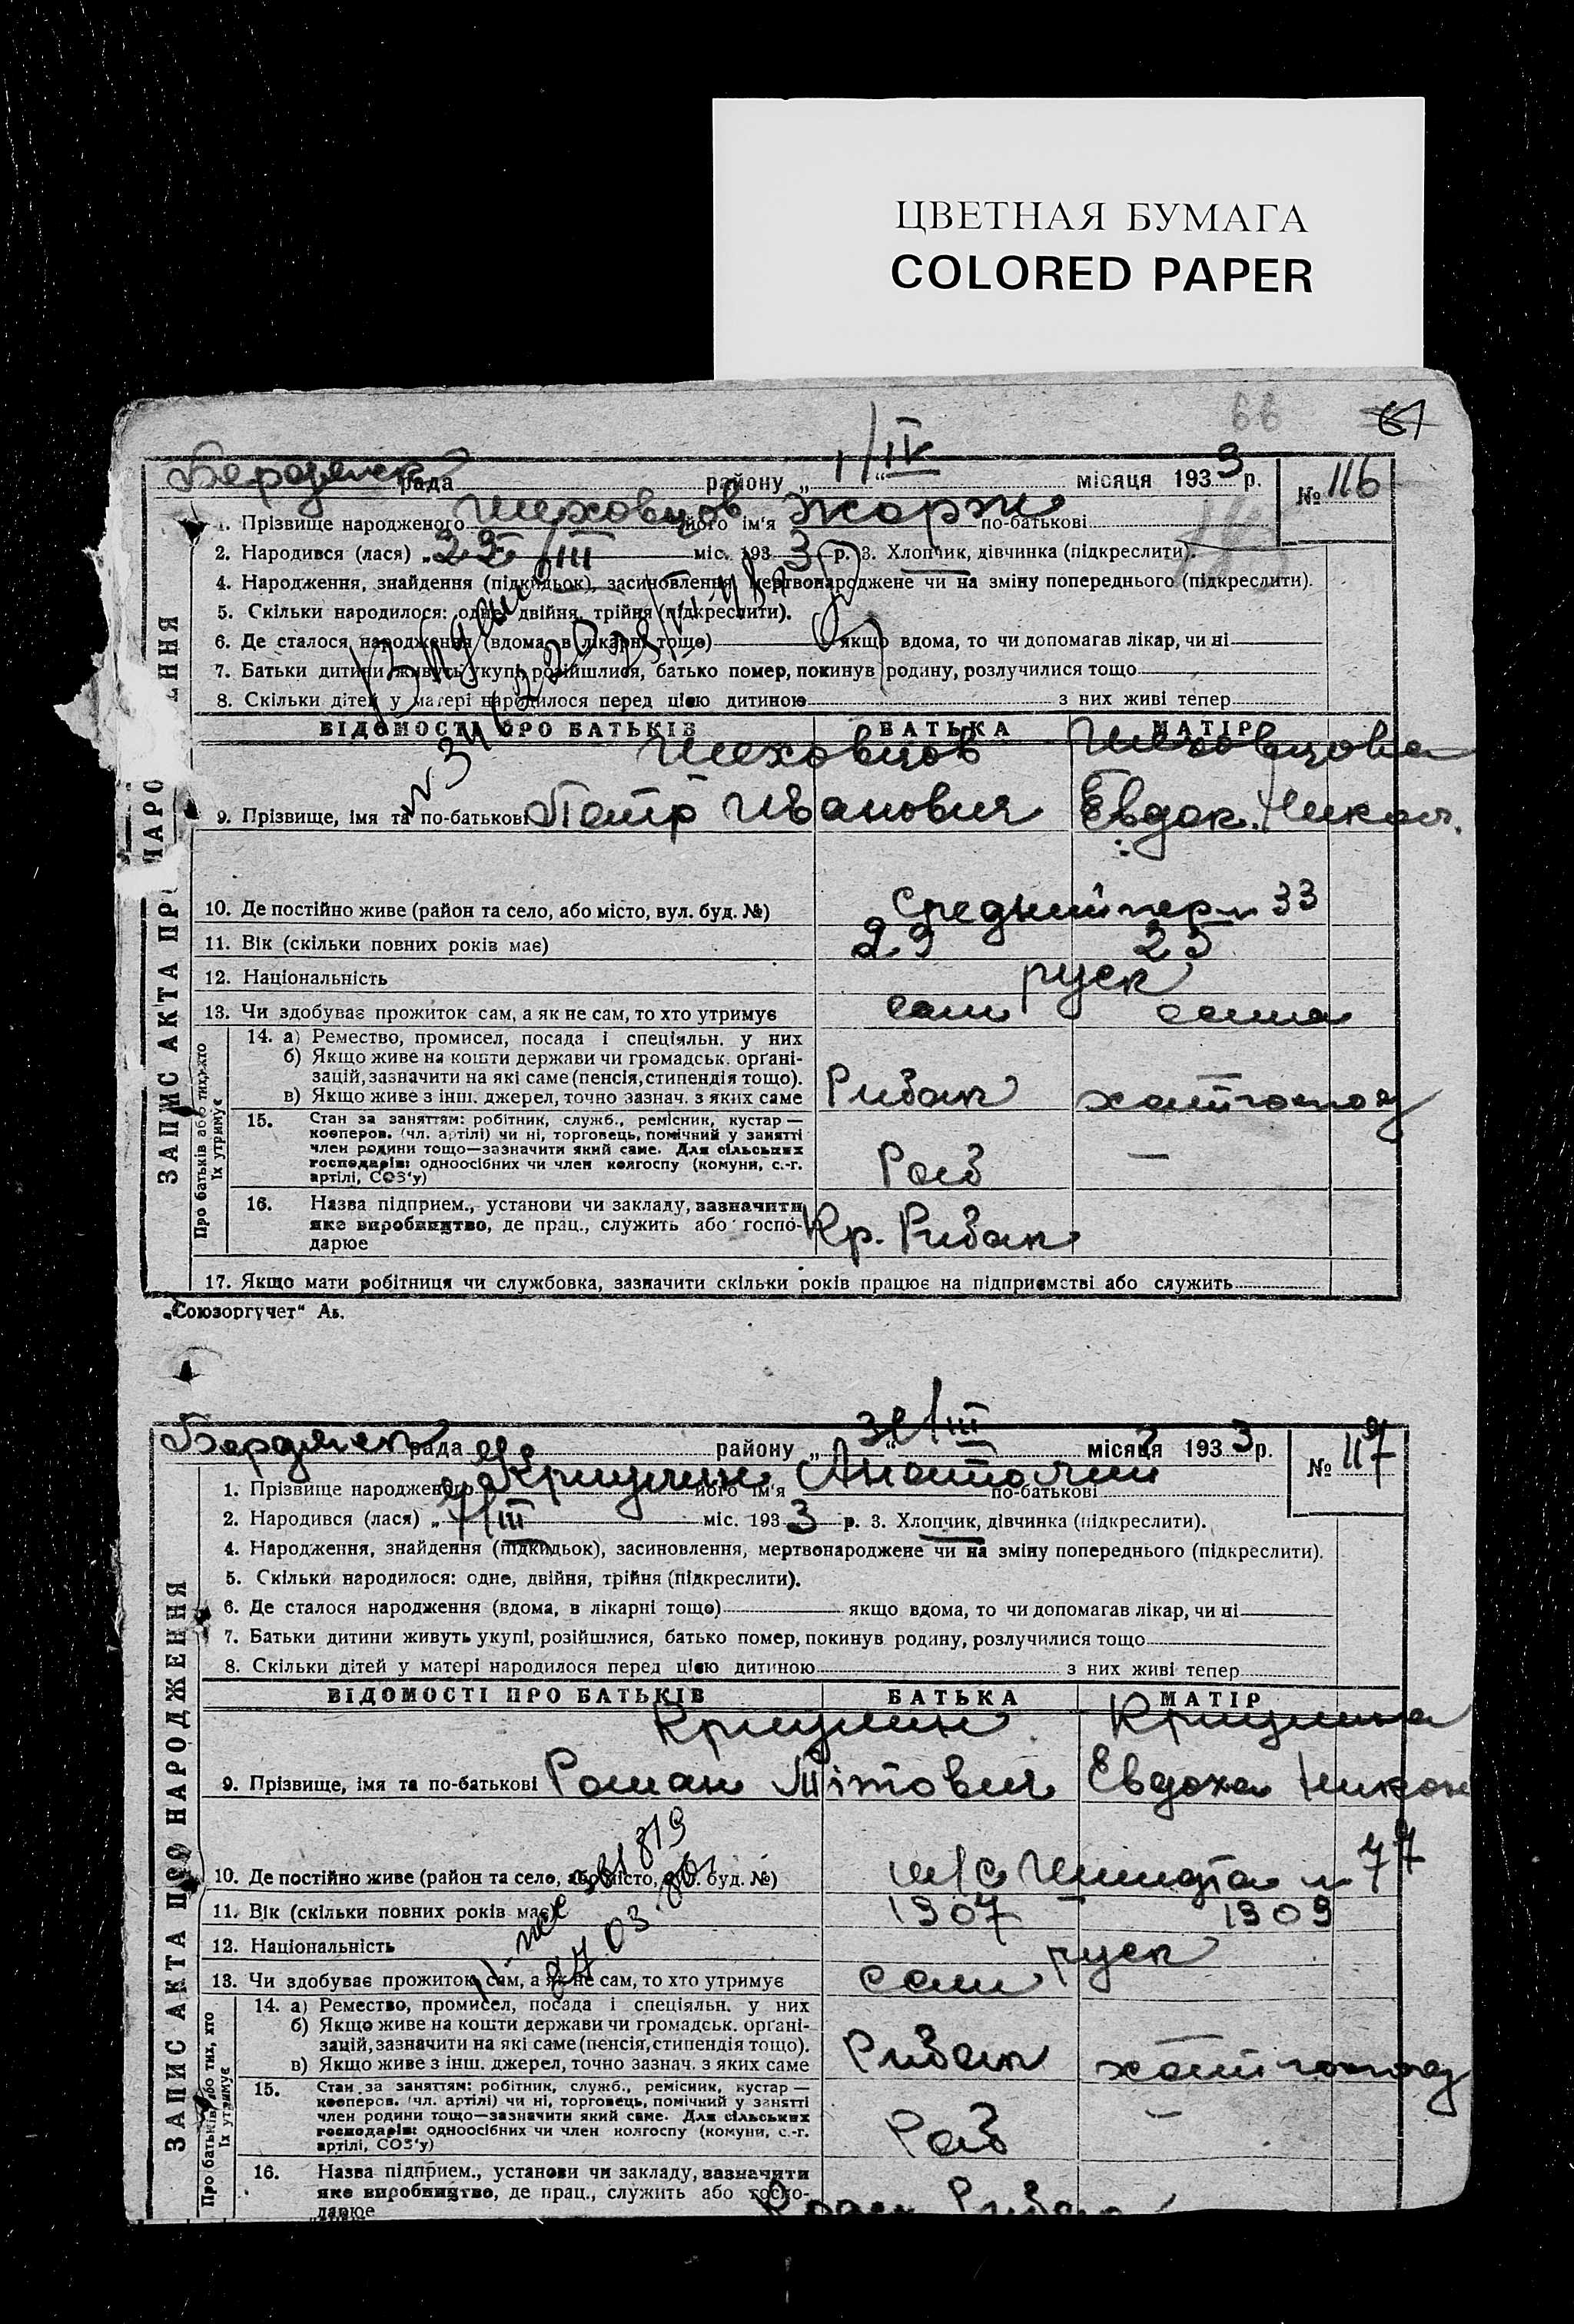 ЦВЕТНАЯ БУМАГА
COLORED PAPER
66 61
Бердянск рада району „ 1/IV “ місяця 1933 р. № 116
1. Прізвище народженого Шеховцов його ім'я Жорж по-батькові
2. Народився (лася) „22/III міс. 1933 р. 3. Хлопчик, дівчинка (підкреслити).
4. Народження, знайдення (підкидьок), засиновлення, мертвонароджене чи на зміну попереднього (підкреслити).
5. Скільки народилося: одне, двійня, трійня (підкреслити).
6. Де сталося народження (вдома, в лікарні тощо) якщо вдома, то чи допомагав лікар, чи ні
7. Батьки дитини живуть укупі, розійшлися, батько помер, покинув родину, розлучилися тощо
8. Скільки дітей у матері народилося перед цією дитиною з них живі тепер
ВІДОМОСТІ ПРО БАТЬКІВ БАТЬКА МАТІР
Шеховцов Шеховцова
9. Прізвище, імя та по-батькові Петр Иванович Евдок. Никол.
10. Де постійно живе (район та село, або місто, вул. буд. №) Средний пер 33
11. Вік (скільки повних років має) 29 25
12. Національність руск
13. Чи здобуває прожиток сам, а як не сам, то хто утримує сам сама
14. а) Ремество, промисел, посада і спеціяльн. у них
б) Якщо живе на кошти держави чи громадськ. орґані-
зацій, зазначити на які саме (пенсія, стипендія тощо).
в) Якщо живе з інш. джерел, точно зазнач. з яких саме Рибак хатн господ
15. Стан за заняттям: робітник, служб., ремісник, кустар —
кооперов. (чл. артілі) чи ні, торговець, помічний у занятті
член родини тощо—зазначити який саме. Для сільських
господарів: одноосібних чи член колгоспу (комуни, с.-г.
артілі, СОЗ'у) Роб —
16. Назва підприєм., установи чи закладу, зазначити
яке виробництво, де прац., служить або госпо-
дарює Кр. Рибак
17. Якщо мати робітниця чи службовка, зазначити скільки років працює на підприємстві або служить
ЗАПИС АКТА ПРО НАРОДЖЕННЯ
Про батьків або тих, хто
їх утримує
„Союзоргучет“
Бердянск рада району „ 31/III “ місяця 1933 р. № 117
1. Прізвище народженого його ім'я Анатолий по-батькові
2. Народився (лася) „7/III міс. 1933 р. 3. Хлопчик, дівчинка (підкреслити).
4. Народження, знайдення (підкидьок), засиновлення, мертвонароджене чи на зміну попереднього (підкреслити).
5. Скільки народилося: одне, двійня, трійня (підкреслити).
6. Де сталося народження (вдома, в лікарні тощо) якщо вдома, то чи допомагав лікар, чи ні
7. Батьки дитини живуть укупі, розійшлися, батько помер, покинув родину, розлучилися тощо
8. Скільки дітей у матері народилося перед цією дитиною з них живі тепер
ВІДОМОСТІ ПРО БАТЬКІВ БАТЬКА МАТІР
9. Прізвище, імя та по-батькові Роман Тітович Евдоха Никон
10. Де постійно живе (район та село, або місто, вул. буд. №) 77
11. Вік (скільки повних років має) 1907 1909
12. Національність руск
13. Чи здобуває прожиток сам, а як не сам, то хто утримує сам
14. а) Ремество, промисел, посада і спеціяльн. у них
б) Якщо живе на кошти держави чи громадськ. орґані-
зацій, зазначити на які саме (пенсія, стипендія тощо).
в) Якщо живе з інш. джерел, точно зазнач. з яких саме Рибак хатн господ
15. Стан за заняттям: робітник, служб., ремісник, кустар —
кооперов. (чл. артілі) чи ні, торговець, помічний у занятті
член родини тощо—зазначити який саме. Для сільських
господарів: одноосібних чи член колгоспу (комуни, с.-г.
артілі, СОЗ'у) Роб —
16. Назва підприєм., установи чи закладу, зазначити
яке виробництво, де прац., служить або госпо-
дарює
ЗАПИС АКТА ПРО НАРОДЖЕННЯ
Про батьків або тих, хто
їх утримує